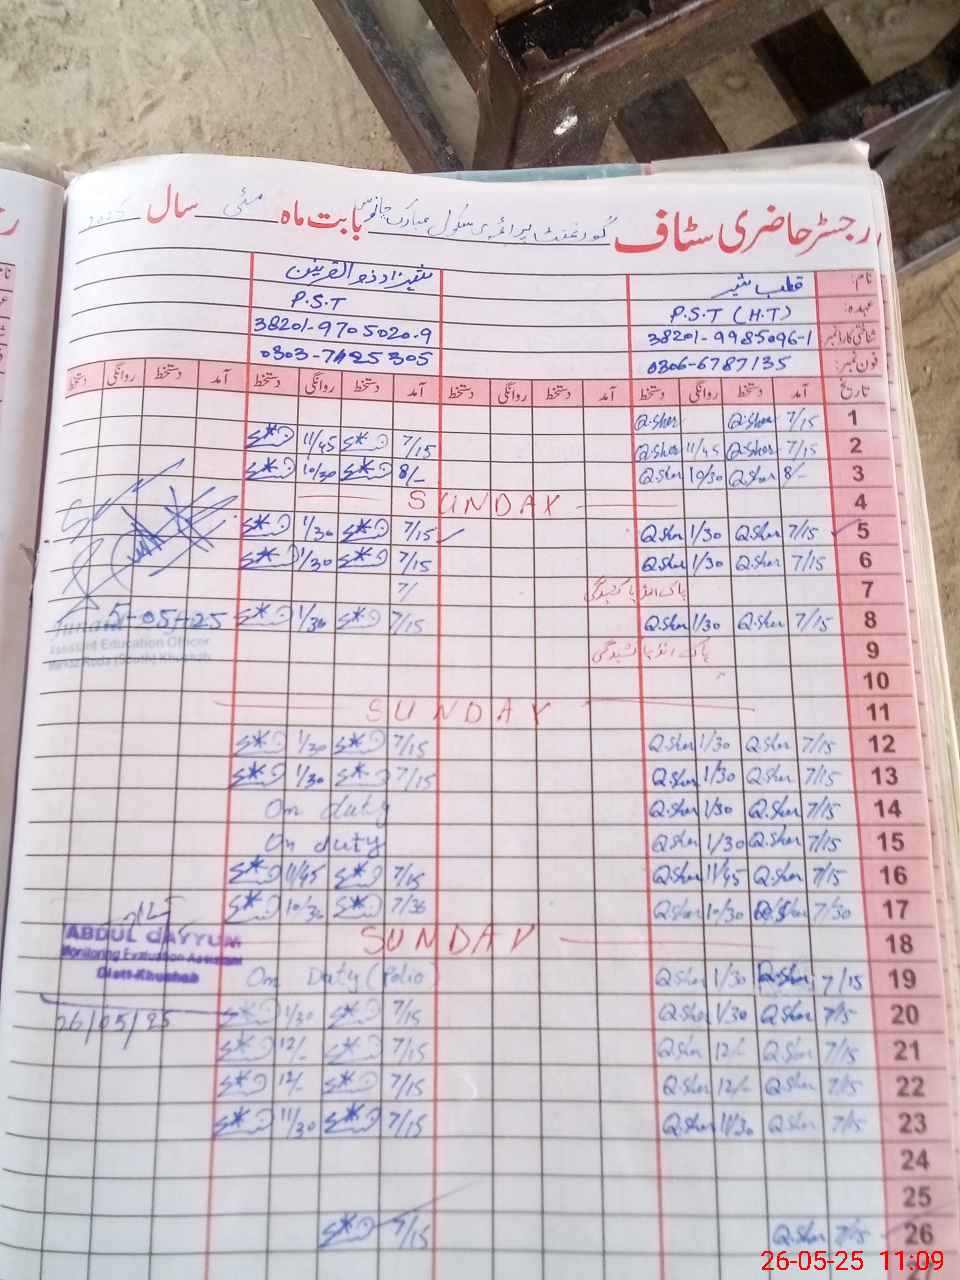 رجسٹر حاضری سٹاف گورنمنٹ پرائمری سکول مبارک بابت ماہ مئی سال
نام: قطب شیر شہزاد ذوالقرنین
عہدہ: P.S.T (H.T) P.S.T
شناختی کارڈ نمبر 38201-9985096-1 38201-9705020-9
فون نمبر: 0306-6787135 0303-7425305
تاریخ آمد دستخط روانگی دستخط آمد دستخط روانگی دستخط آمد دستخط روانگی دستخط
1 7/15 Q.Sher Q.Sher
2 7/15 Q.Sher 11/45 Q.Sher 7/15 11/45
3 8/- Q.Sher 10/30 Q.Sher 8/- 10/30
4 SUNDAY
5 7/15 Q.Sher 1/30 Q.Sher 7/15 1/30
6 7/15 Q.Sher 1/30 Q.Sher 7/15 1/30
7 پاک انڈیا کشیدگی 7/
8 7/15 Q.Sher 1/30 Q.Sher 7/15 1/30
05-25
Assistant Education Officer
Markaz Roda (South) Khushab
9 پاک انڈیا کشیدگی
10
11 SUNDAY
12 7/15 Q.Sher 1/30 Q.Sher 7/15 1/30
13 7/15 Q.Sher 1/30 Q.Sher 7/15 1/30
14 7/15 Q.Sher 1/30 Q.Sher On duty
15 7/15 Q.Sher 1/30 Q.Sher On duty
16 7/15 Q.Sher 11/45 Q.Sher 7/15 11/45
17 7/30 10/30 Q.Sher 7/30 10/30
18 SUNDAY
ABDUL QAYYUM
Monitoring Evaluation Assistant
Distt Khushab
26/05/25
19 7/15 Q.Sher 1/30 Q.Sher On Duty (Polio)
20 7/15 Q.Sher 1/30 Q.Sher 7/15 1/30
21 7/15 Q.Sher 12/- Q.Sher 7/15 12/-
22 7/15 Q.Sher 12/- Q.Sher 7/15 12/-
23 7/15 Q.Sher 11/30 Q.Sher 7/15 11/30
24
25
26 7/15 Q.Sher 7/15
26-05-25 11:09